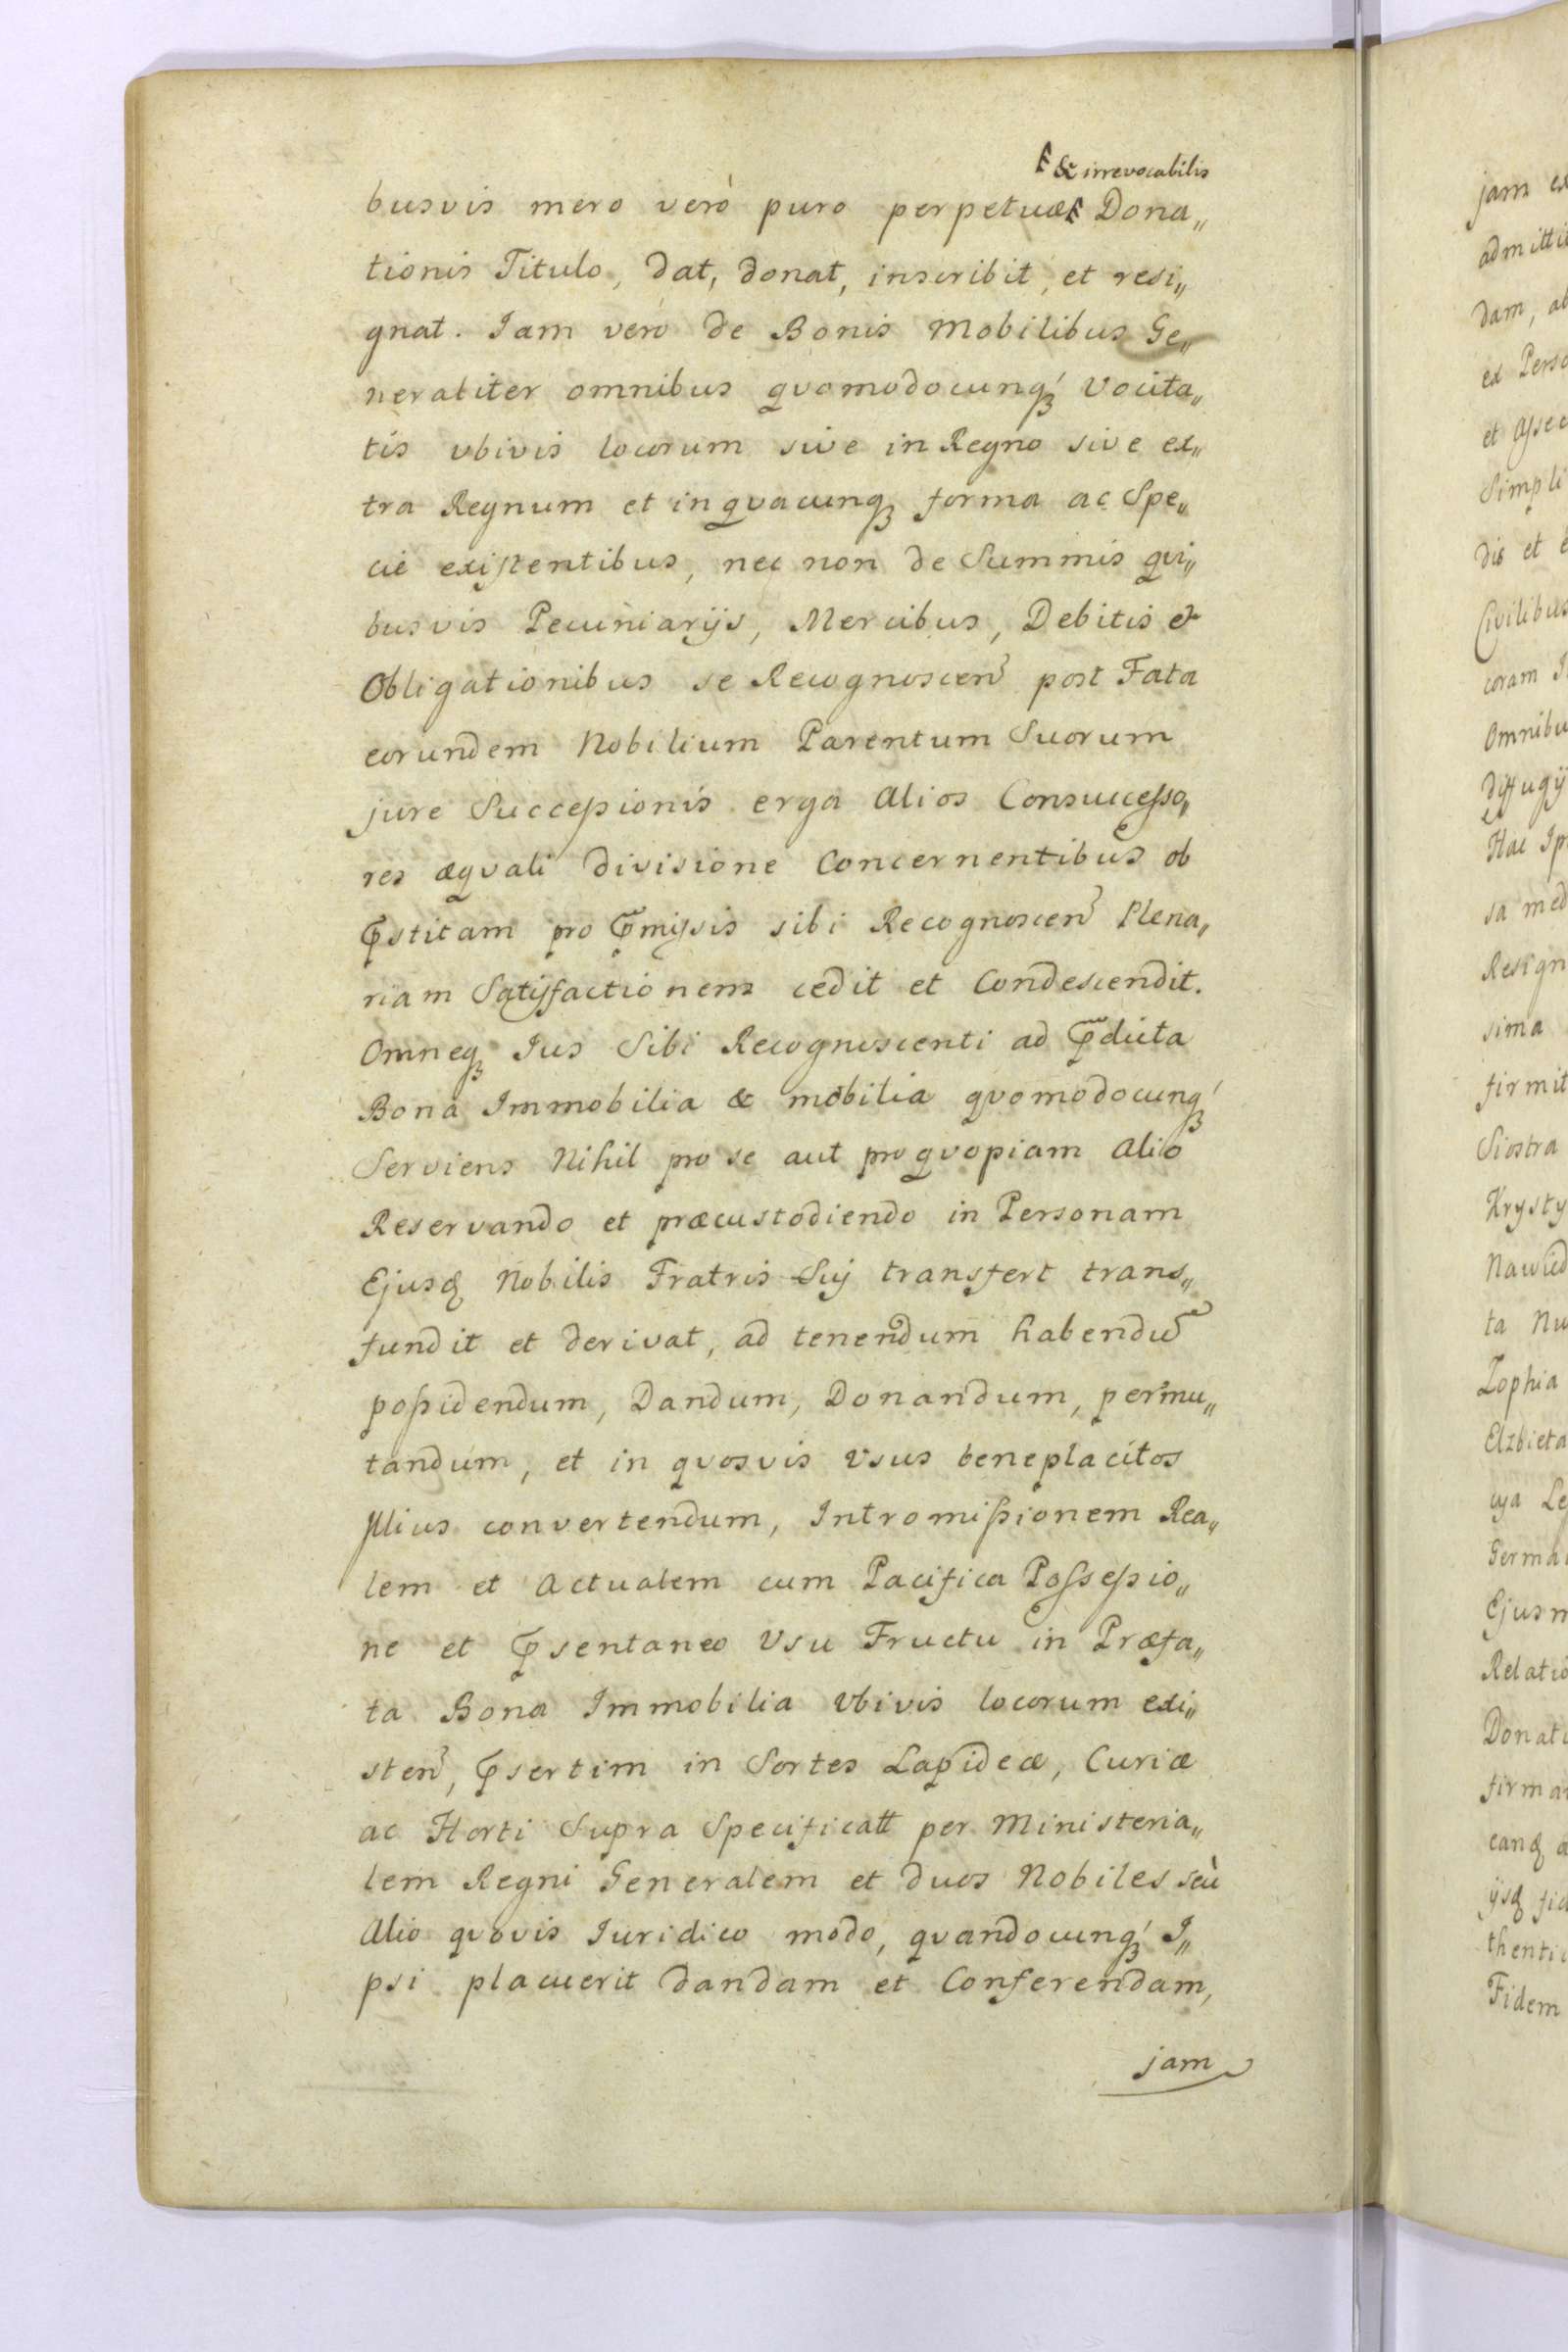 & irrevocabilis
busvis mero verò puro perpetuæ Dona„
tionis Titulo, dat, donat, inscribit, et resi„
gnat. Iam verò de Bonis Mobilibus Ge„
neraliter omnibus quomodocunq́ʒ Vocita„
tis ubivis locorum sive in Regno sive ex„
tra Regnum et in quacunqʒ forma ac Spe„
cie existentibus, nec non de Summis qui„
busvis Pecuniarijs, Mercibus, Debitis et
Obligationibus se Recognoscen̄ post Fata
eorundem Nobilium Parentum Suorum
jure Successionis erga Alios Consuccesso„
res æquali divisione Concernentibus ob
p̄stitam pro p̄missis sibi Recognoscen̄ Plena„
riam Satisfactionem cedit et Condescendit.
Omneqʒ Ius Sibi Recognoscenti ad p̄dicta
Bona Immobilia & mobilia quomodocunq́ʒ
Serviens Nihil pro se aut pro quopiam Alio
Reservando et præcustodiendo in Personam
Ejusd Nobilis Fratris Sui transfert trans„
fundit et derivat, ad tenendum habendū
possidendum, Dandum, Donandum, permu„
tandum, et in quosvis Usus beneplacitos
Illius convertendum, Intromissionem Rea„
lem et Actualem cum Pacifica Possessio„
ne et p̄sentaneo Usu Fructu in Præfa„
ta Bona Immobilia Ubivis locorum exi„
sten̄, p̄sertim in Sortes Lapideæ, Curiæ
ac Horti Supra Specificatt per Ministeria„
lem Regni Generalem et duos Nobiles seù
Alio quovis Iuridico modo, quandocunq́ʒ I„
psi placuerit dandam et Conferendam,
jam
jam ex
admitti
dam, ab
ex Perso
et Assec
Simpli
dis et e
Civilibus
coram I
Omnibu
diffugij
Hac Ip
sa med
Resign
sima
firmit
Siostra
Krysty
Nawied
ta Nu
Zophia
Elzbieta
cya Le
Germa
Ejusm
Relatio
Donati
firma
eand a
ijsd fid
thenti
Fidem